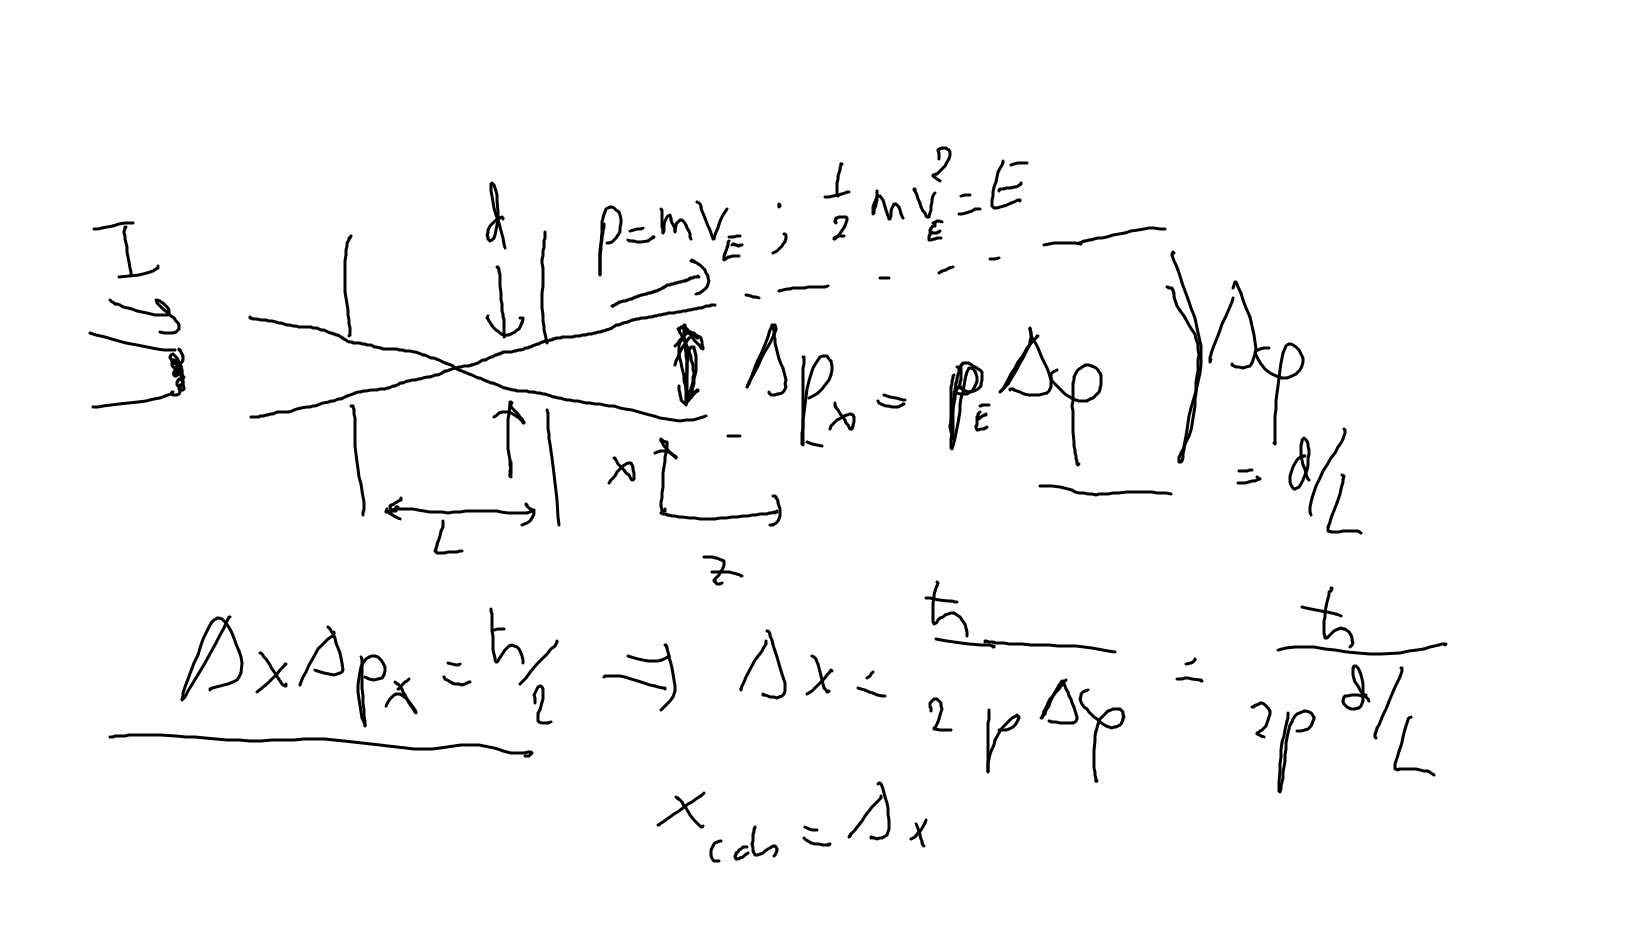 I
d
p=mv_E ; 1/2 mv_E^2=E
Δp_x = p_E Δφ
Δφ = d/L
x
z
L
ΔxΔp_x = ħ/2 ⇒ Δx = ħ/(2pΔφ) = ħ/(2p d/L)
x_coh = Δx